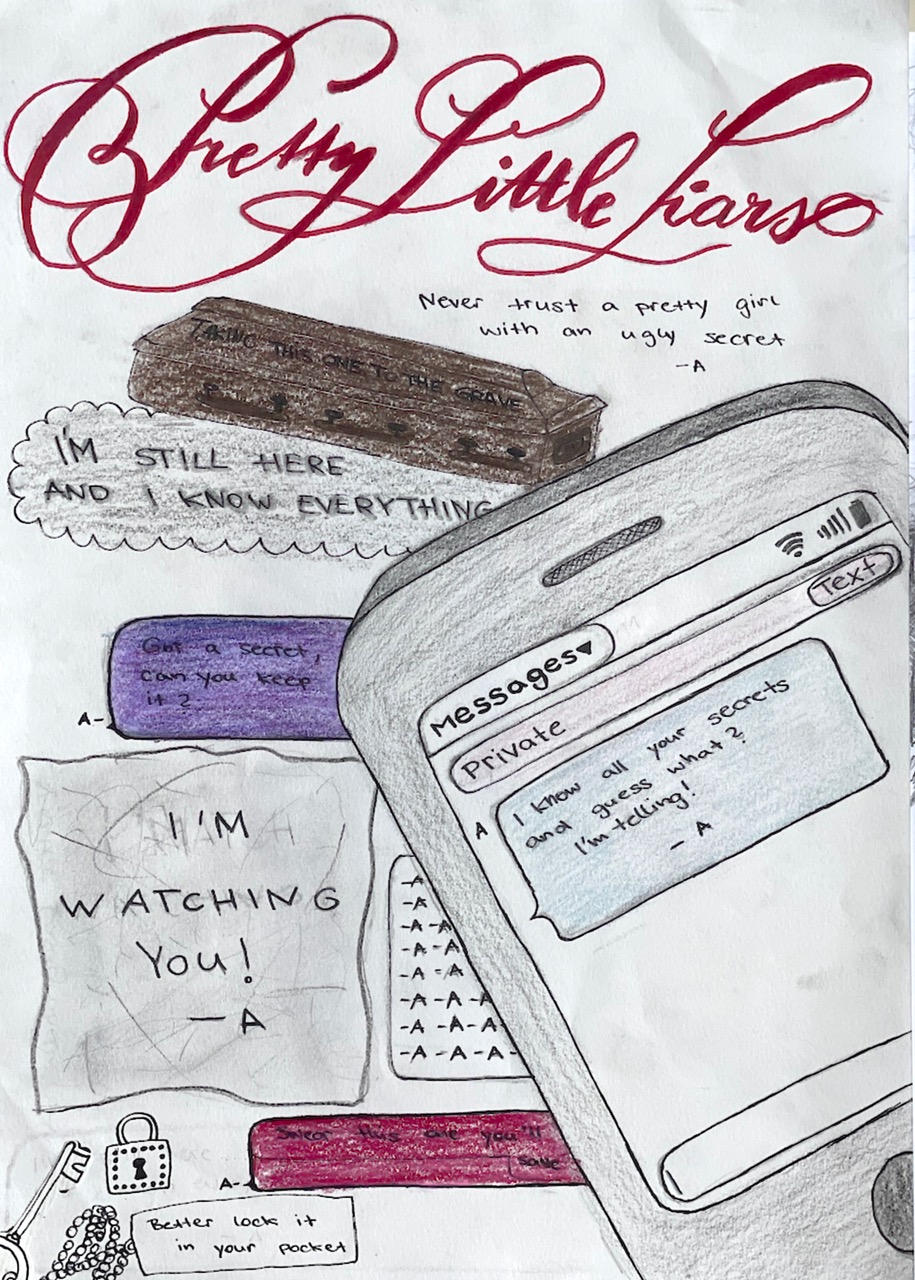 Pretty Little Liars
Never trust a pretty girl
with an ugly secret
-A
TAKING THIS ONE TO THE GRAVE
I'M STILL HERE
AND I KNOW EVERYTHING
Text
Messages▾
Private
I know all your secrets
and guess what?
I'm telling!
- A
A
Got a secret,
can you keep
it?
A-
I'M
WATCHING
You!
- A
-A
-A
-A -A
-A -A
-A -A
-A -A -A
-A -A -A
-A -A -A -
Swear this one you'll
save
A-
Better lock it
in your pocket